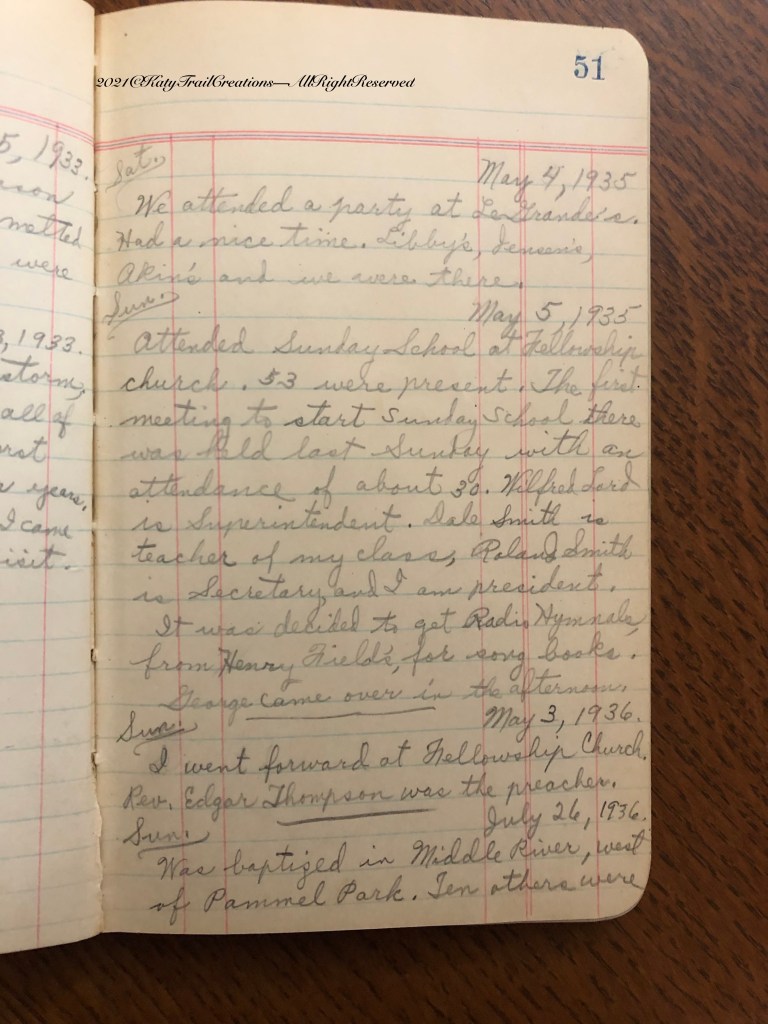 2021©KatyTrailCreations—AllRightReserved
51
5, 1933.
matted
were
3, 1933.
storm,
all of
years.
I came
isit.
Sat.
May 4, 1935
We attended a party at LeGrande's.
Had a nice time. Libby's, Jensen's,
Akin's and we were there.
Sun.
May 5, 1935
Attended Sunday School at Fellowship
church. 53 were present. The first
meeting to start Sunday School there
was held last Sunday with an
attendance of about 30. Wilfred Lord
is Superintendent. Dale Smith is
teacher of my class, Roland Smith
is Secretary and I am president.
It was decided to get Radio Hymnals,
from Henry Field's, for song books.
George came over in the afternoon.
Sun.
May 3, 1936.
I went forward at Fellowship Church.
Rev. Edgar Thompson was the preacher.
Sun.
July 26, 1936.
Was baptized in Middle River, west
of Pammel Park. Ten others were